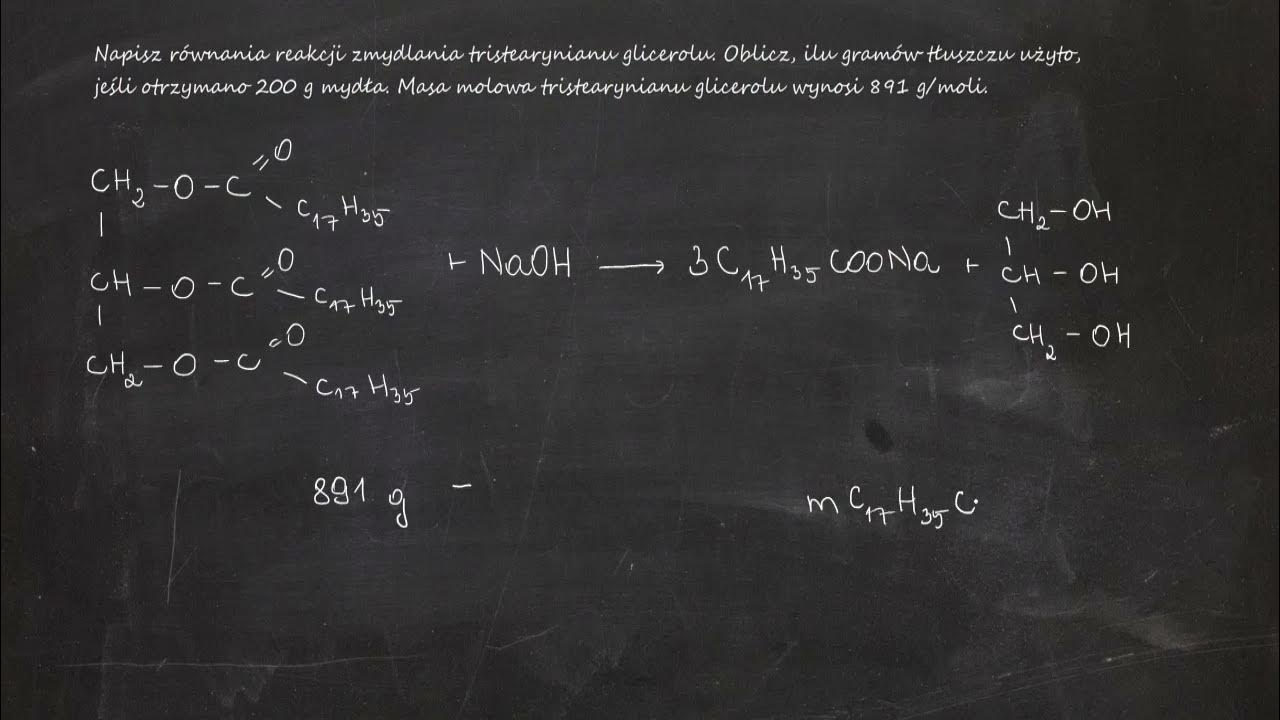 Napisz równania reakcji zmydlania tristearynianu glicerolu. Oblicz, ilu gramów tłuszczu użyto,
jeśli otrzymano 200 g mydła. Masa molowa tristearynianu glicerolu wynosi 891 g/moli.
CH₂-O-C=O
C₁₇H₃₅
CH-O-C=O
C₁₇H₃₅
CH₂-O-C=O
C₁₇H₃₅
+ NaOH → 3C₁₇H₃₅COONa +
CH₂-OH
CH-OH
CH₂-OH
891 g -
m C₁₇H₃₅C